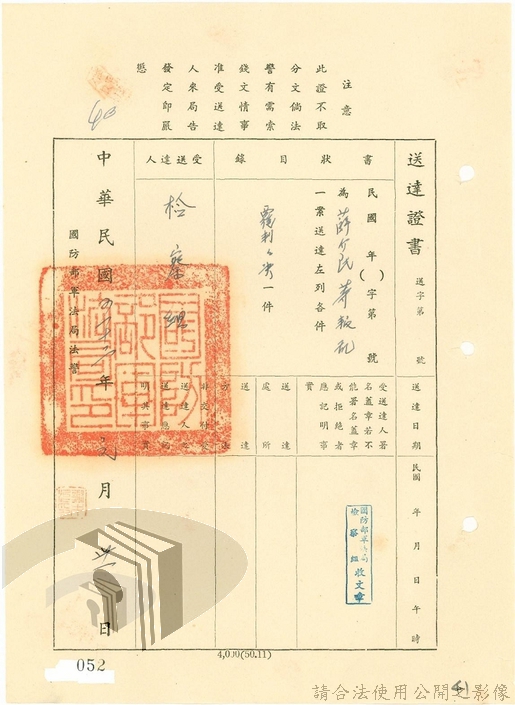 注意
此證不取
分文倘法
警有需索
錢文情事
准受送達
人來局告
發定即嚴
懲
送達證書
送字第 號
書狀目錄
民國 年( )字第 號
為 薛介民 等叛乱
一案送達左列各件
覆判 一件
受送達人
檢察
送達日期
民國 年 月 日 午 時
受送達人署
名蓋章若不
能署名蓋章
或拒絕者
應記明事
實
送達處所
送達方法
非交付受
送達人之
送達應記
明其事實
國防部軍法局
檢察組
收文章
中華民國 年 月 日
國防部軍法局法警
4,000(50.11)
052
請合法使用公開之影像